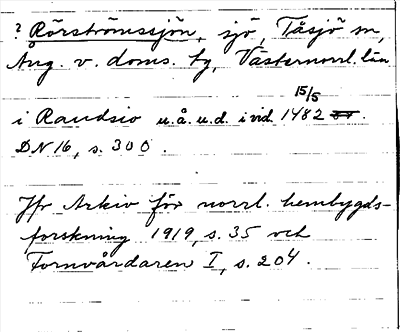 ? Rörströmssjön, sjö, Tåsjö sn,
Ång. v. doms. tg, Västernorrl. län
i Raudsio u.å.u.d. i vid. 1482 15/5.
DN 16, s. 300.
Jfr Arkiv för norrl. hembygds-
forskning 1919, s. 35 och
Fornvårdaren I, s. 204.